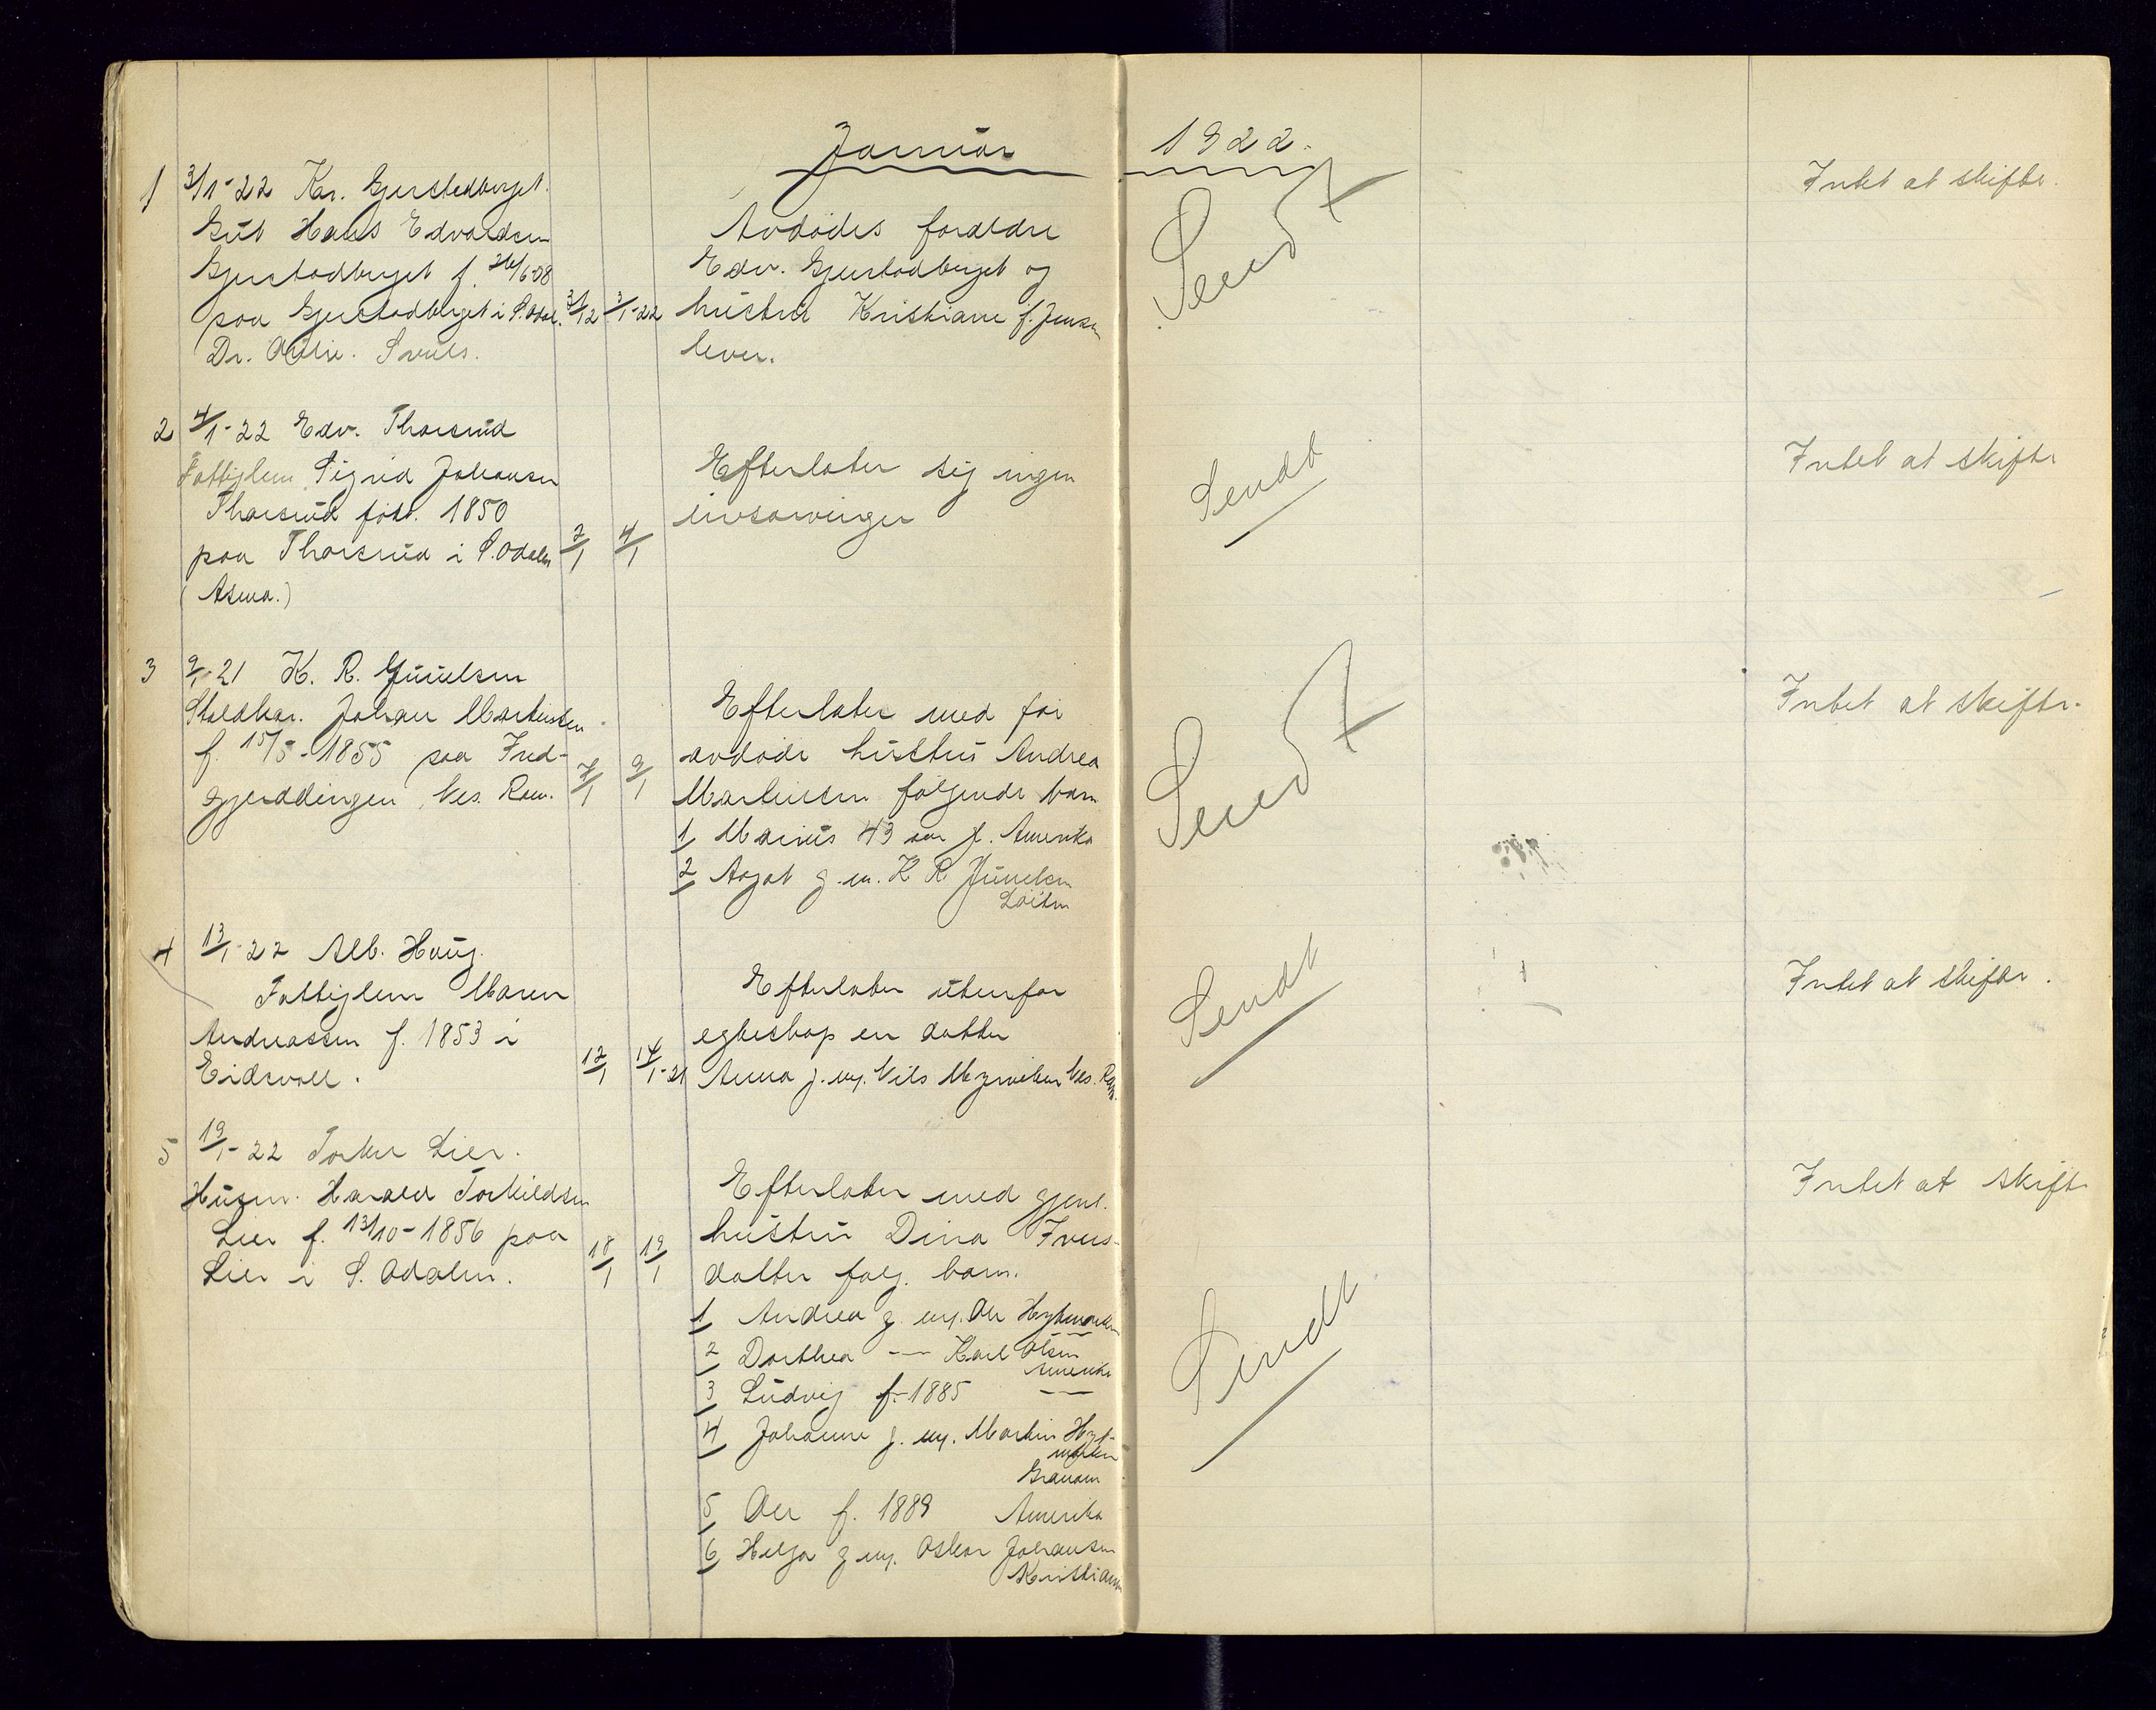 Januar 1922.
1 3/1-22 Kr. Gjerstadberget.
Gut Hans Edvardsen
Gjerstadberget f. 26/6-08
paa Gjerstadberget i S. Odal. 31/12 3/1-22
Dr.
Avdødes forældre
Edv. Gjerstadberget og
hustru Kristiane f. Jensen
lever.
Sendt
Intet at skifte.
2 4/1-22 Edv. Thorsrud
Fattiglem Sigrid Johansen
Thorsrud født. 1850
paa Thorsrud i S. Odalen 2/1 4/1
(Asma.)
Efterlater sig ingen
livsarvinger
Sendt
Intet at skifte
3 9/1-21 K. R. Juulsen
Johan Martinsen
f. 15/5-1855 paa Fred-
gjerddingen, Nes. Rom. 7/1 9/1
Efterlater med før
avdøde hustru Andrea
Martinsen følgende barn
1 Marius 43 aar f. Amerika
2 Aagot g. m. K. R. Juulsen
Løiten
Sendt
Intet at skifte.
4 13/1-22 Alb. Haug.
Fattiglem Maren
Andreassen f. 1853 i
Eidsvoll. 12/1 14/1-21
Efterlater utenfor
egteskap en datter
Anna g. m. Nils Nes. Rom.
Sendt
Intet at skifte.
5 19/1-22 Torker Lier.
Husm. Harald Torkildsen
Lier f. 13/10-1856 paa
Lier i S. Odalen. 18/1 19/1
Efterlater med gjenl.
hustru Dina Ivers-
datter følg. barn.
1 Andrea g. m. Ole
2 Dorthea — Karl Olsen
Amerika
3 Ludvig f. 1885 —
4 Johanne g. m. Martin Hyt-
marken
5 Ole f. 1889 Amerika
6 Helga g m. Oskar Johansen
Kristiania
Sendt
Intet at skifte